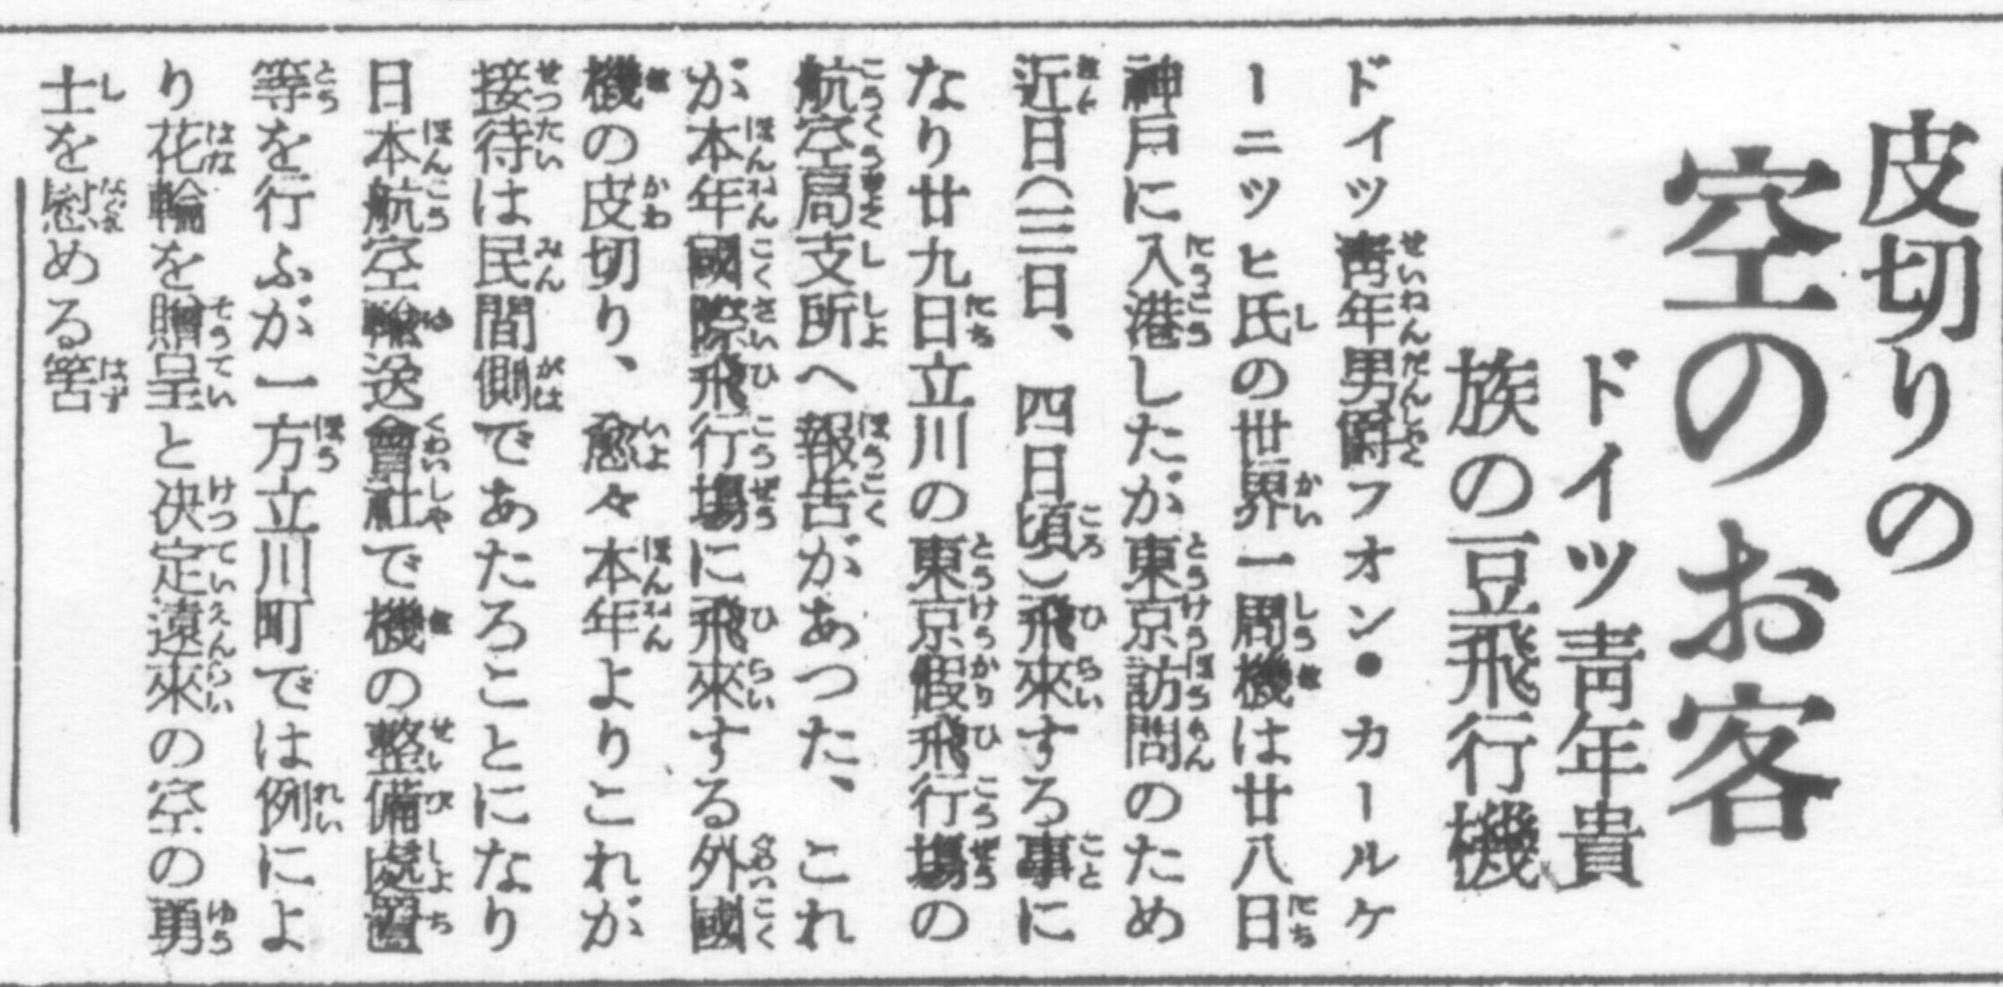 皮切りの
空のお客
ドイツ靑年貴
族の豆飛行機
ドイツ靑年男爵フオン・カールケ
ーニツヒ氏の世界一周機は廿八日
神戸に入港したが東京訪問のため
近日(三日、四日頃)飛來する事に
なり廿九日立川の東京假飛行場の
航空局支所へ報告があつた、これ
が本年國際飛行場に飛來する外國
機の皮切り、愈々本年よりこれが
接待は民間側であたることになり
日本航空輸送會社で機の整備處置
等を行ふが一方立川町では例によ
り花輪を贈呈と决定遠來の空の勇
士を慰める筈